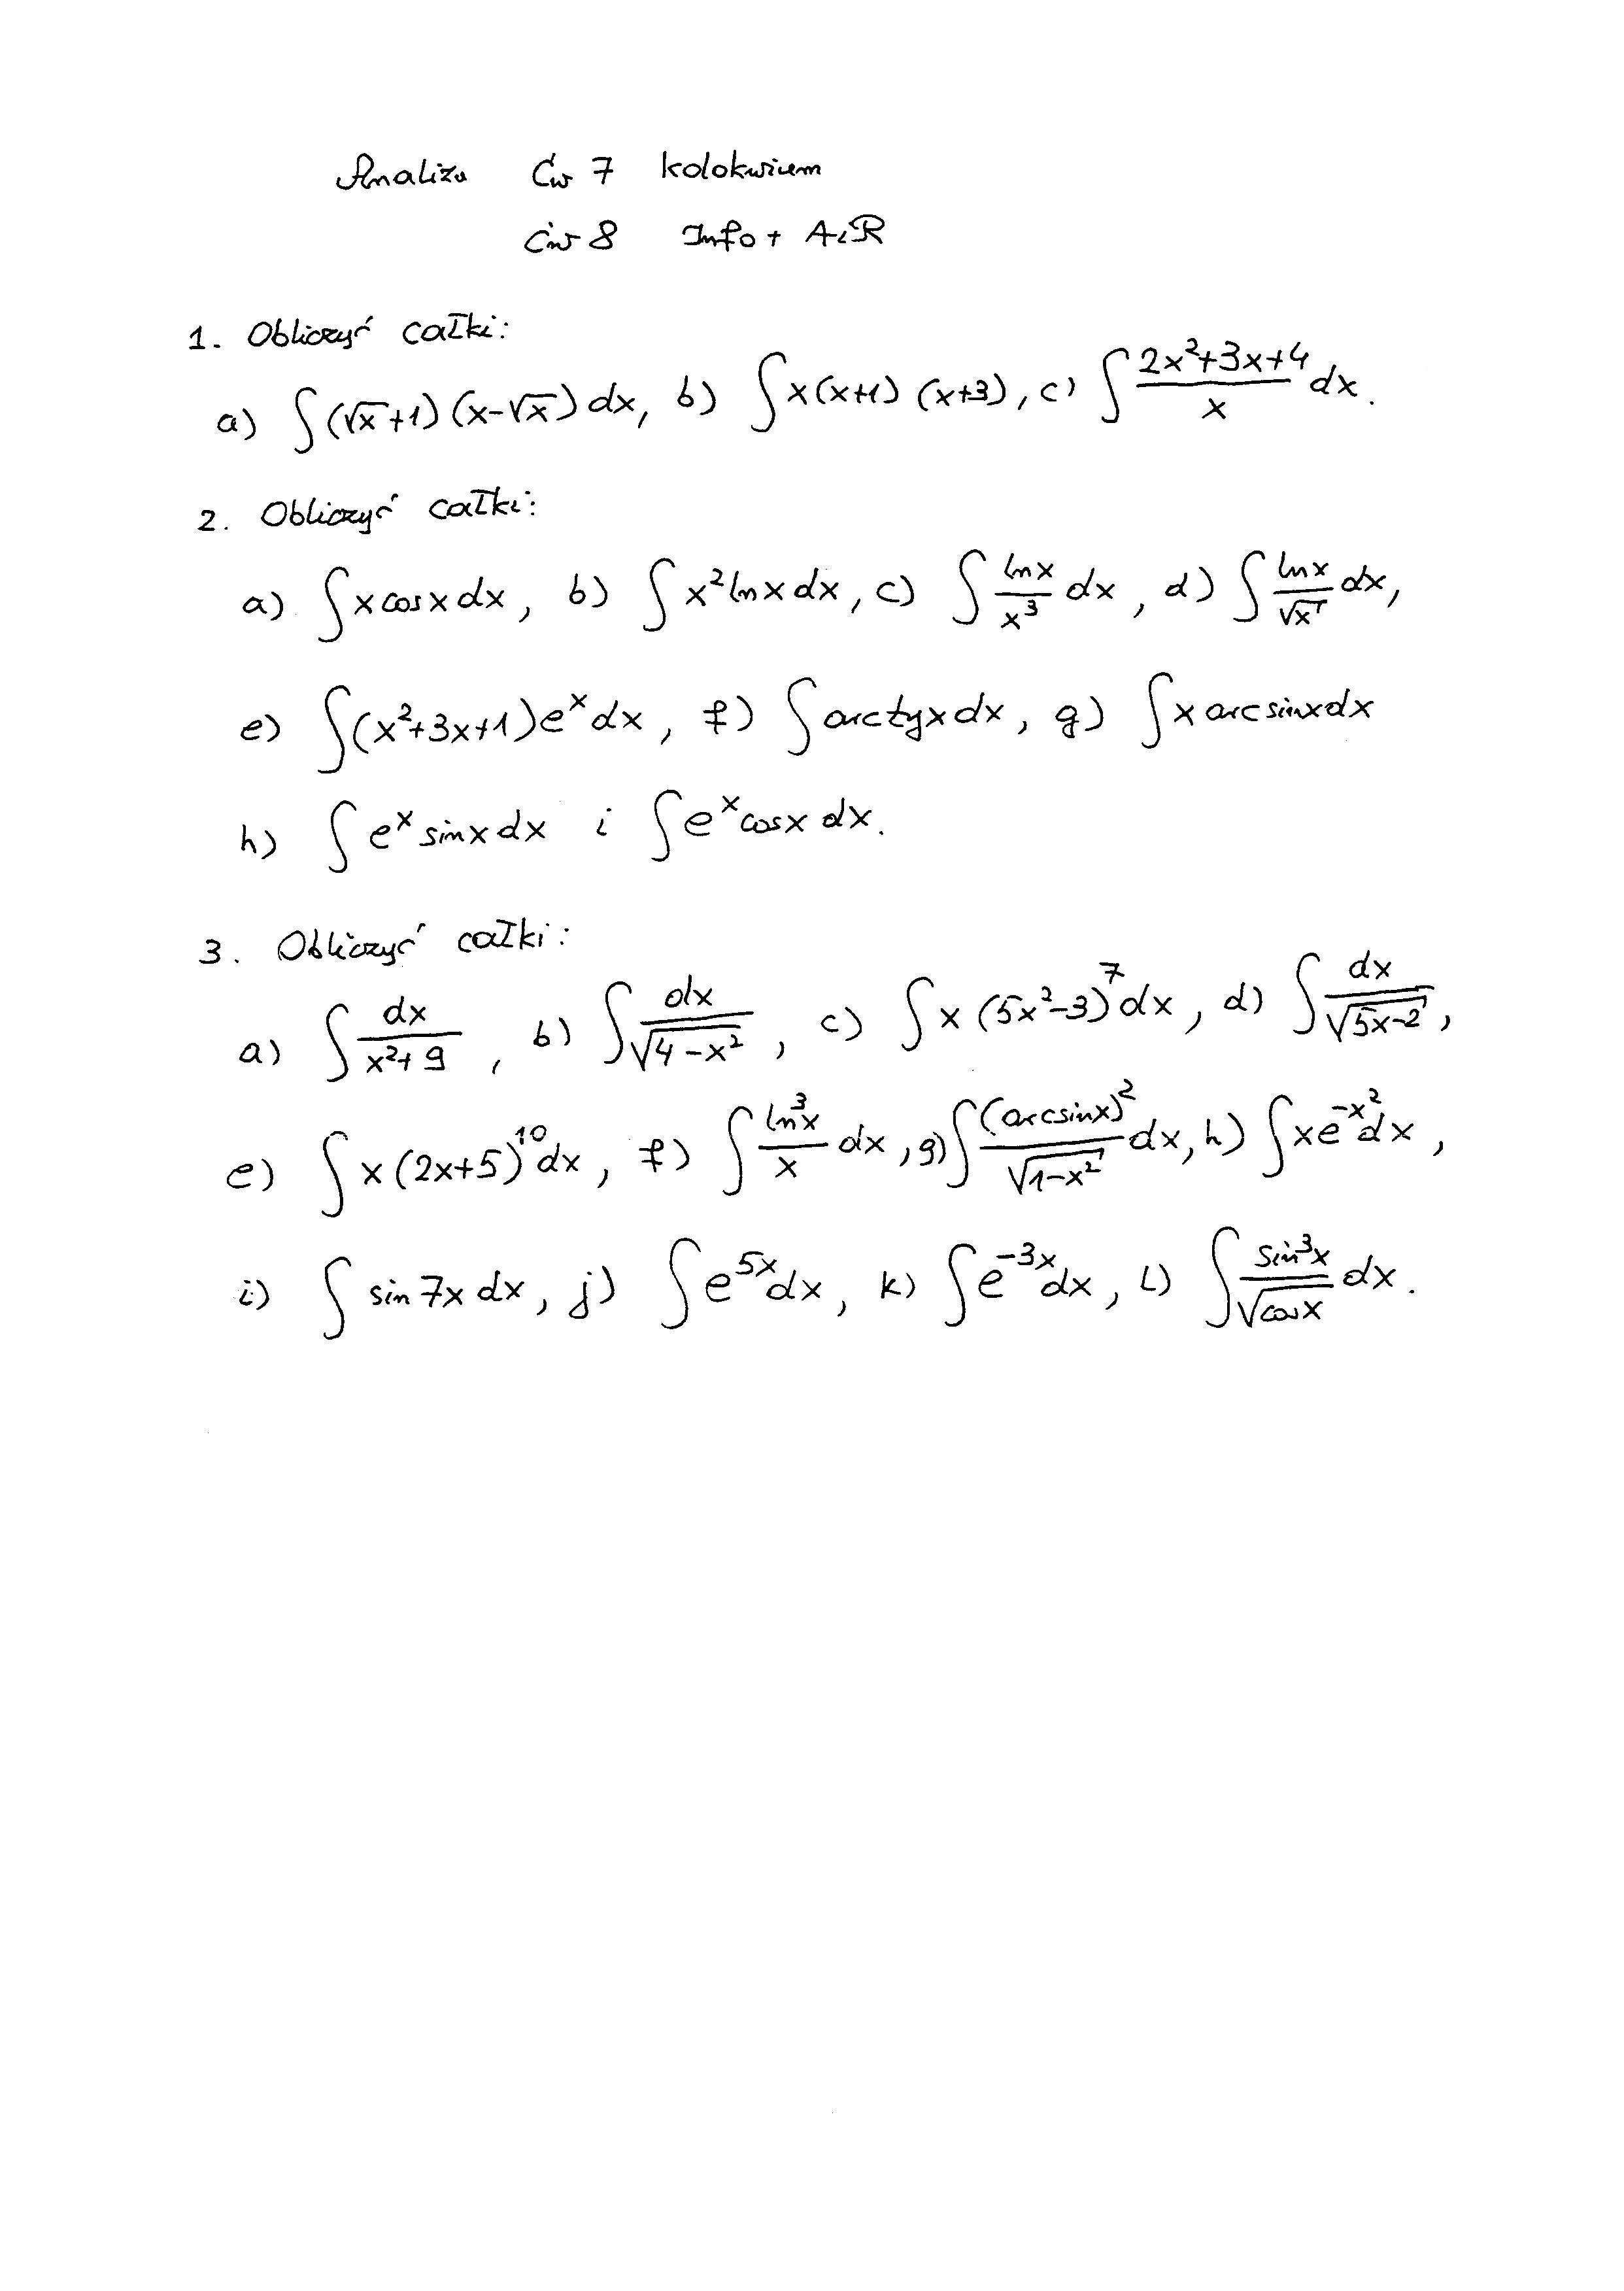 Analiza Ćw 7 kolokwium
Ćw 8 Info + AiR
1. Obliczyć całki:
a) ∫(√x+1)(x-√x) dx, b) ∫x(x+1)(x+3), c) ∫(2x²+3x+4)/x dx.
2. Obliczyć całki:
a) ∫x cos x dx, b) ∫x² ln x dx, c) ∫ln x/x³ dx, d) ∫ln x/√x dx,
e) ∫(x²+3x+1)eˣ dx, f) ∫arctg x dx, g) ∫x arc sin x dx
h) ∫eˣ sin x dx i ∫eˣ cos x dx.
3. Obliczyć całki:
a) ∫dx/(x²+9), b) ∫dx/√(4-x²), c) ∫x(5x²-3)⁷ dx, d) ∫dx/√(5x-2),
e) ∫x(2x+5)¹⁰ dx, f) ∫ln³x/x dx, g) ∫(arcsin x)²/√(1-x²) dx, h) ∫xe^(-x²) dx,
i) ∫sin 7x dx, j) ∫e^(5x) dx, k) ∫e^(-3x) dx, l) ∫sin³x/√(cos x) dx.